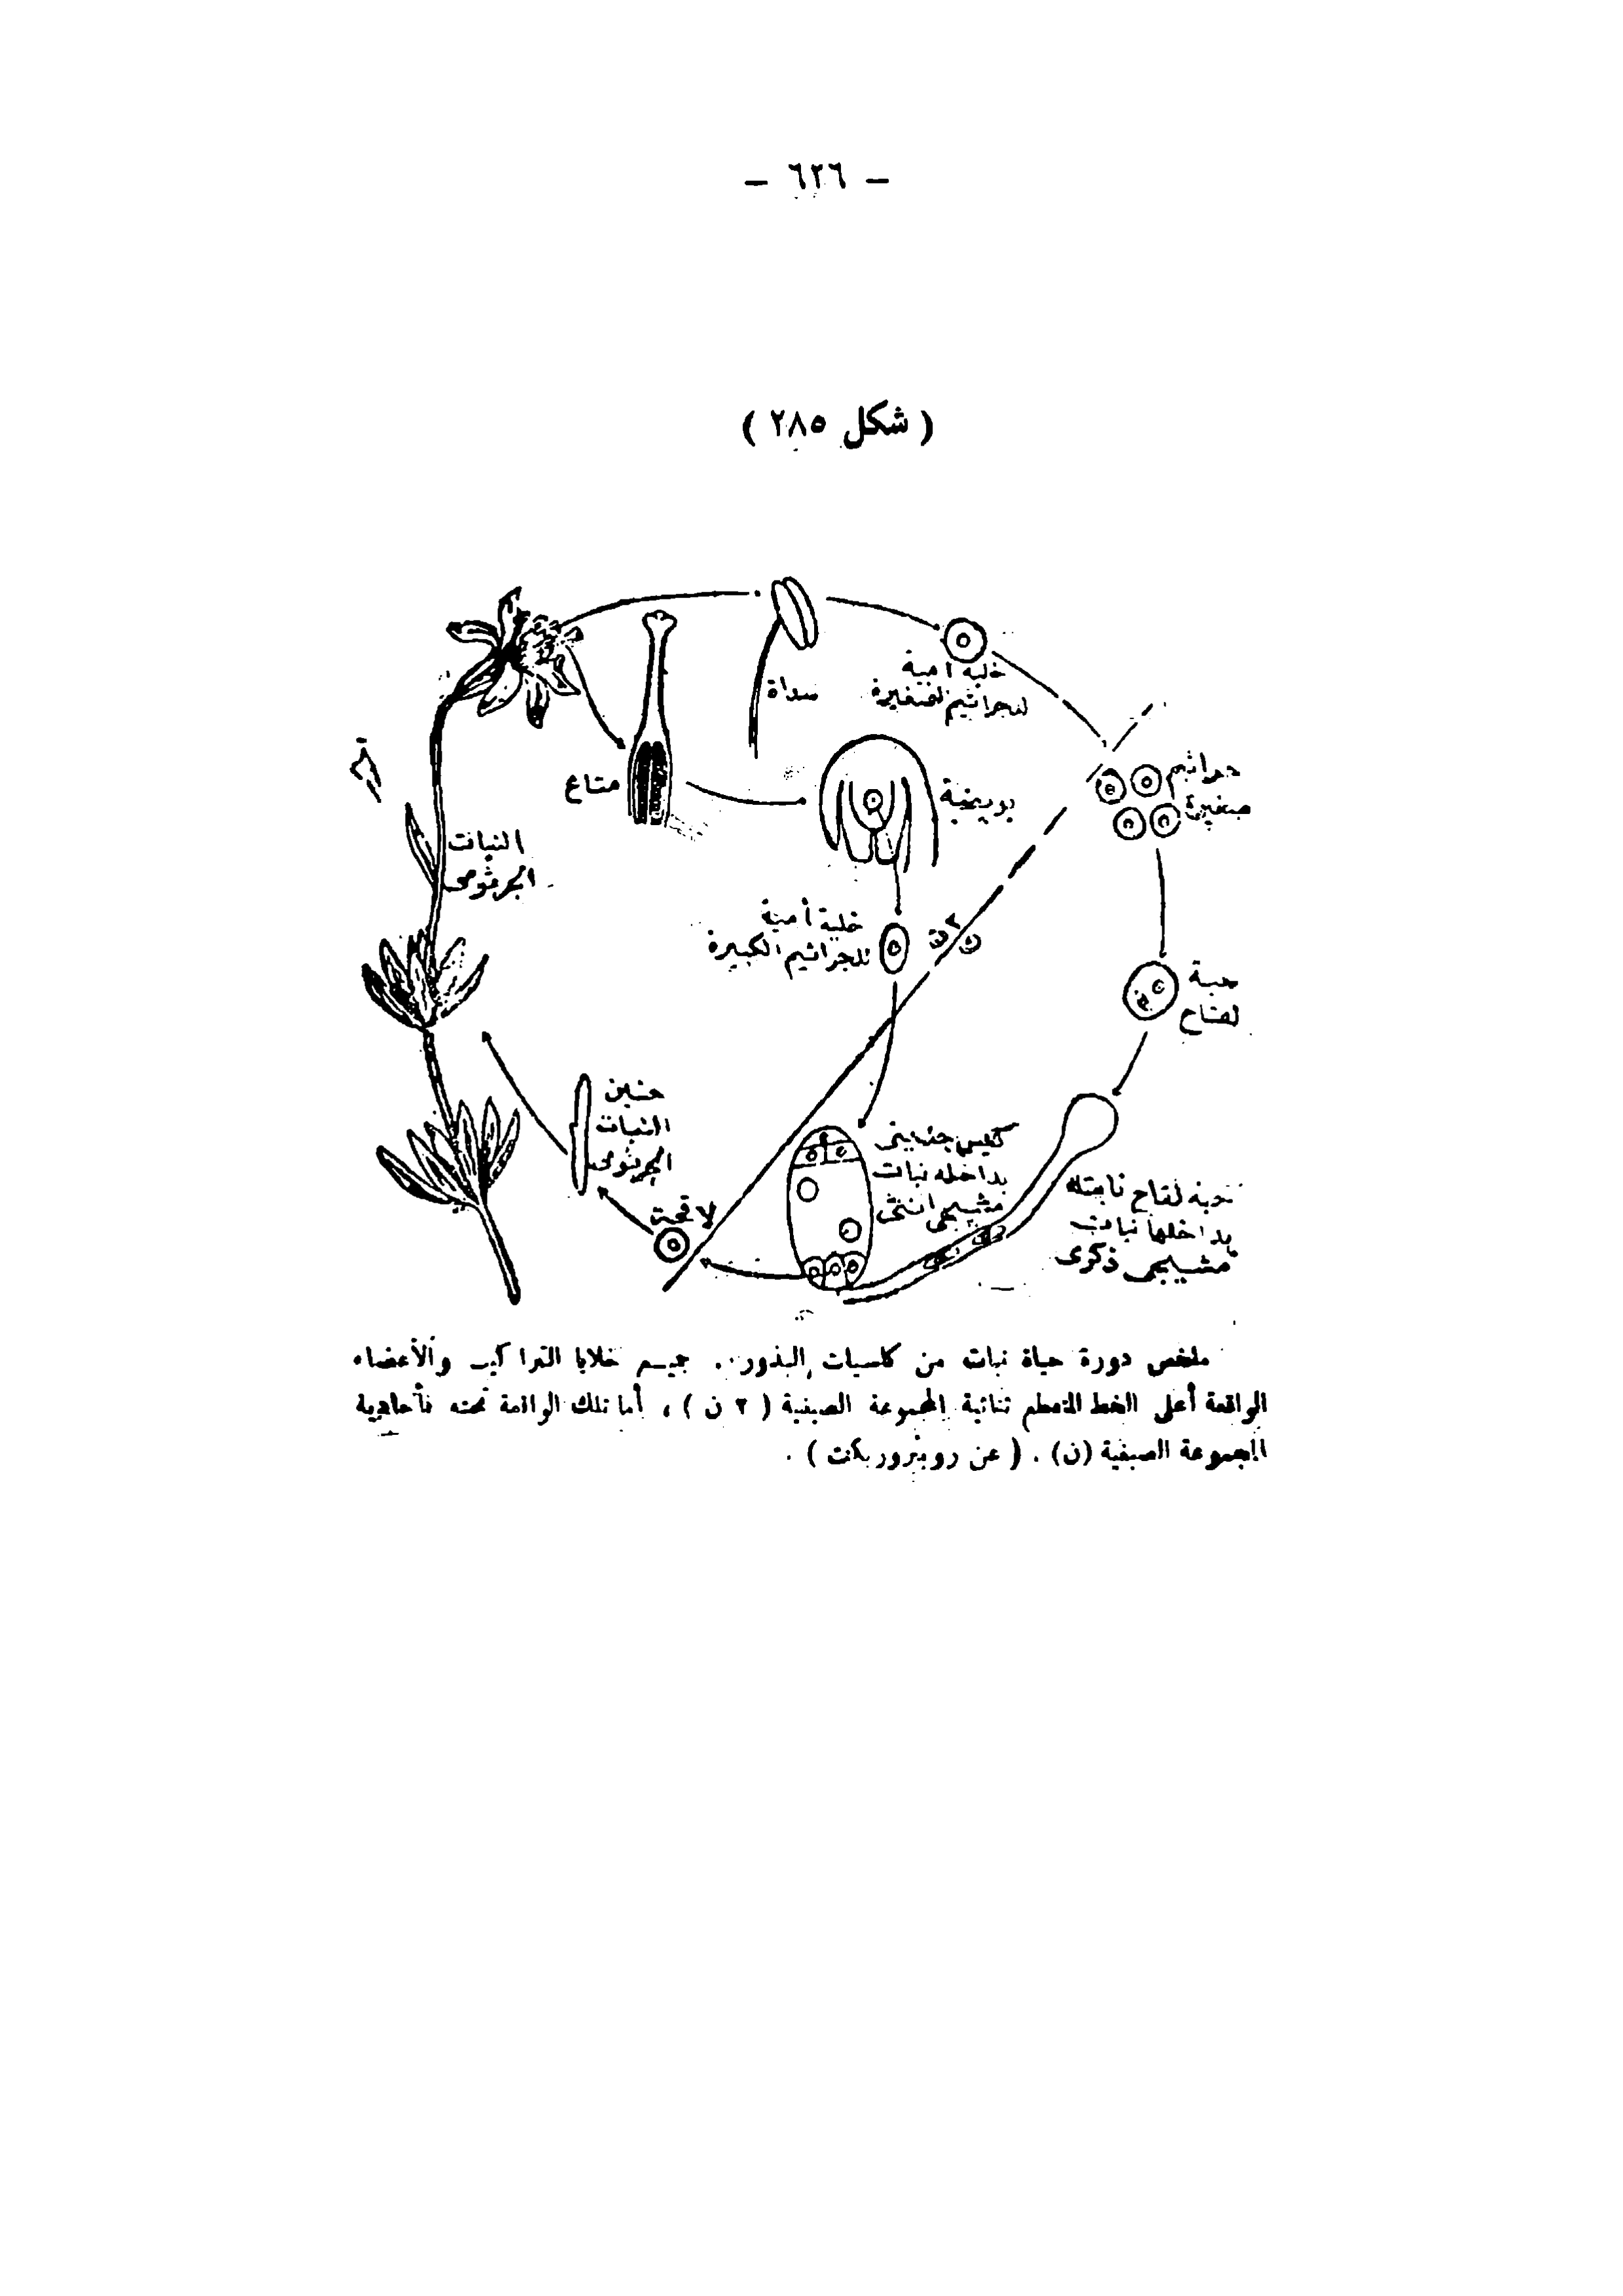 — ٦٢٦ —
( شكل ٢٨٥ )
خلية أمية
للجراثيم الصغيرة
سداة
جراثيم
صغيرة
متاع
بويضة
النبات
الجرثومى
خلية أمية
للجراثيم الكبيرة
٢ن
ن
حبة
لقاح
جنين
النبات
الجرثومى
كيس جنينى
بداخله نبات
مشيجى انثى
حبة لقاح نابتة
بداخلها نبات
مشيجى ذكرى
لاقحة
ملخص دورة حياة نبات من كاسيات البذور . جميع خلايا التراكيب والأعضاء
الواقعة أعلى الخط المتقطع ثنائية المجموعة الصبغية ( ٢ ن ) ، أما تلك الواقعة تحته فأحادية
المجموعة الصبغية (ن) . ( عن روبنز وريكت ) .